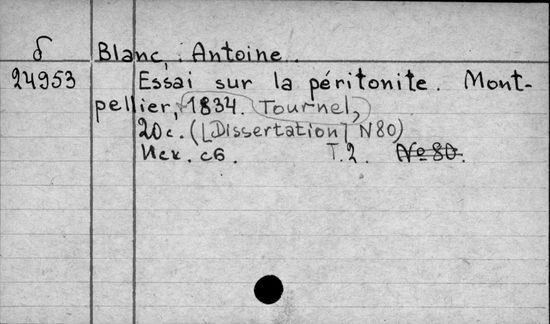 δ Blanc, Antoine.
24953 Essai sur la péritonite. Mont-
pellier, 1834. Tournel,
20 c. ([Dissertation] N80)
Иск. сб. T. 2. № 80.